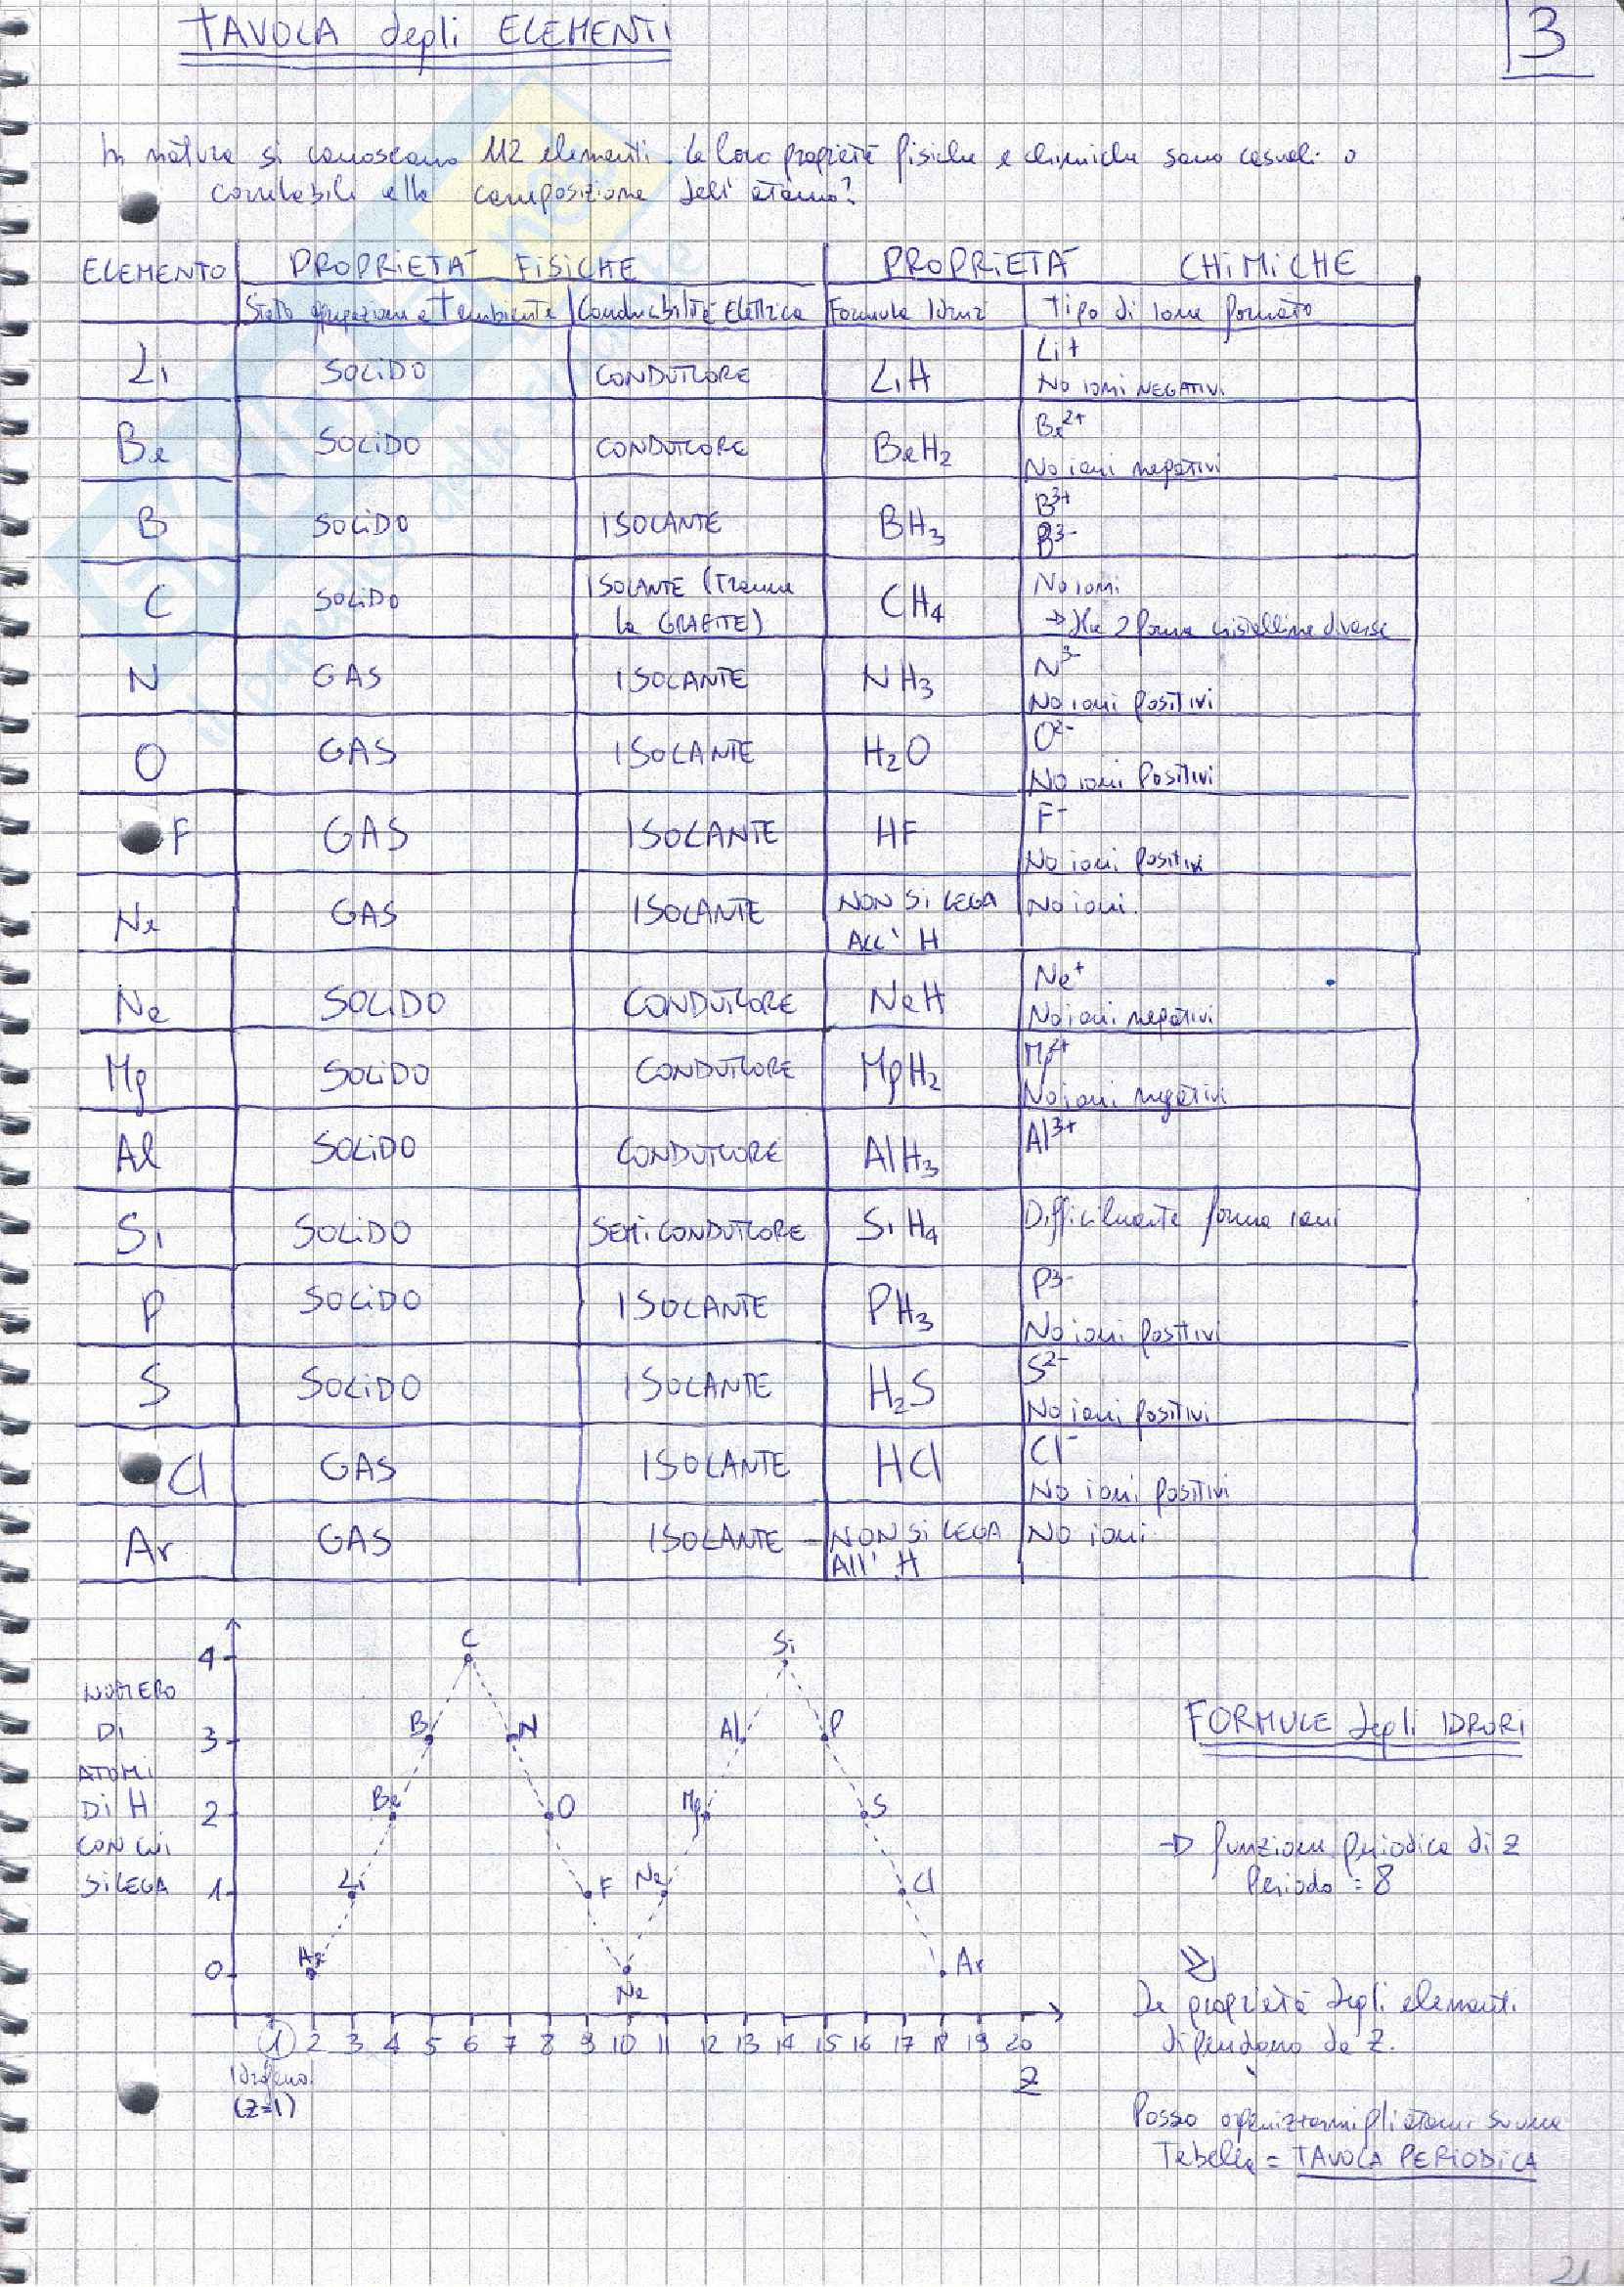 TAVOLA degli ELEMENTI
3
In natura si conoscono 112 elementi. Le loro proprietà fisiche e chimiche sono casuali o
correlabili alla composizione dell'atomo?
ELEMENTO PROPRIETÀ FISICHE PROPRIETÀ CHIMICHE
Stato aggregazione a T ambiente Conducibilità Elettrica Formula Idruri Tipo di ione formato
Li SOLIDO CONDUTTORE LiH Li+
No ioni NEGATIVI
Be SOLIDO CONDUTTORE BeH2 Be2+
No ioni negativi
B SOLIDO ISOLANTE BH3 B3+
B3-
C SOLIDO ISOLANTE (Tranne la GRAFITE) CH4 No ioni
→ Ha 2 forme cristalline diverse
N GAS ISOLANTE NH3 N3-
No ioni positivi
O GAS ISOLANTE H2O O2-
No ioni Positivi
F GAS ISOLANTE HF F-
No ioni Positivi
Ne GAS ISOLANTE NON SI LEGA ALL'H No ioni.
Na SOLIDO CONDUTTORE NaH Na+
No ioni negativi
Mg SOLIDO CONDUTTORE MgH2 Mg2+
No ioni negativi
Al SOLIDO CONDUTTORE AlH3 Al3+
Si SOLIDO SEMICONDUTTORE SiH4 Difficilmente forma ioni
P SOLIDO ISOLANTE PH3 P3-
No ioni positivi
S SOLIDO ISOLANTE H2S S2-
No ioni positivi
Cl GAS ISOLANTE HCl Cl-
No ioni positivi
Ar GAS ISOLANTE NON SI LEGA All'H NO ioni
NUMERO
DI
ATOMI
DI H
CON CUI
SI LEGA
4
3
2
1
0
He Li Be B C N O F Ne Na Mg Al Si P S Cl Ar
1 2 3 4 5 6 7 8 9 10 11 12 13 14 15 16 17 18 19 20
Idrogeno
(Z=1)
Z
FORMULE degli IDRURI
→ funzione periodica di Z
Periodo = 8
Le proprietà degli elementi
dipendono da Z.
Posso organizzarmi gli atomi su una
Tabella = TAVOLA PERIODICA
21